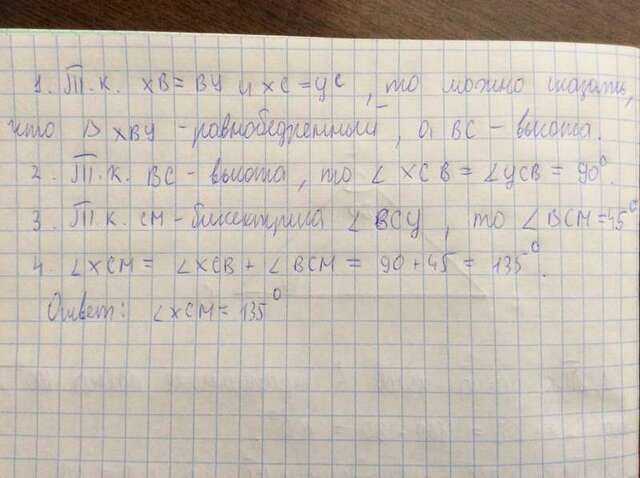 1. Т.к. XB = BY и XC = YC, то можно сказать,
что Δ XBY - равнобедренный, а BC - высота.
2. Т.к. BC - высота, то ∠ XCB = ∠YCB = 90°.
3. Т.к. CM - биссектриса ∠ BCY, то ∠ BCM = 45°
4. ∠XCM = ∠XCB + ∠BCM = 90 + 45 = 135°.
Ответ: ∠XCM = 135°